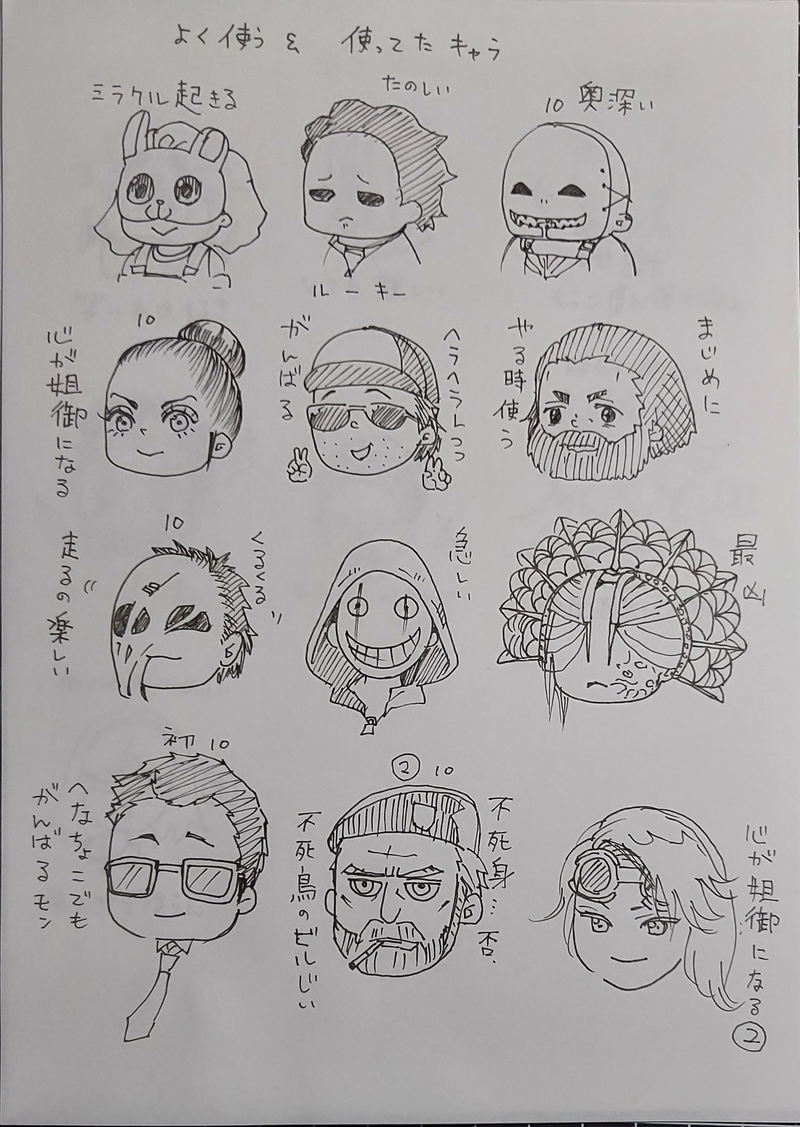 よく使う & 使ってたキャラ
ミラクル起きる
たのしい
10 奥深い
10
心が姐御になる
ルーキー
がんばる
ヘラヘラしつつ
まじめに
やる時使う
10
くるくる
走るの楽しい
怠しい
最凶
初 10
へなちょこでも
がんばるモン
② 10
不死身…否、
不死鳥のビルじい
心が姐御になる
②